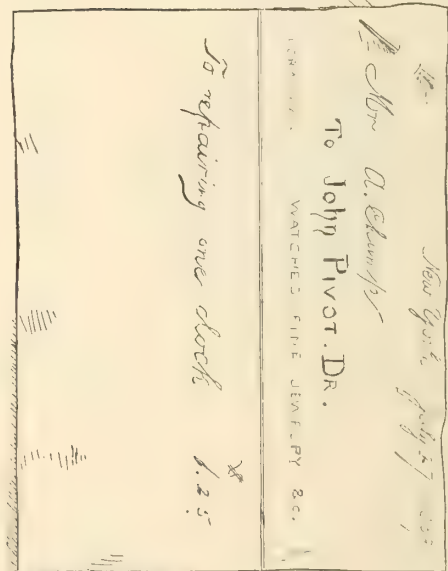 New York July 27
Mr A. Chump
To John Pivot. Dr.
WATCHES FINE JEWELRY &c.
To repairing one clock 1.25